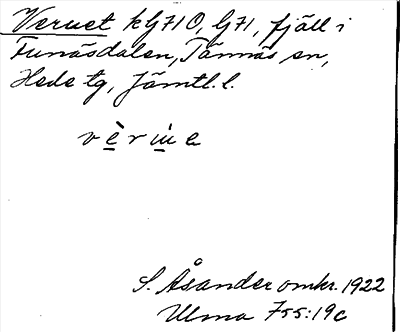 Veruet kG710, G71, fjäll i
Funäsdalen, Tännäs sn,
Hede tg, Jämtl. l.
vèrue
S. Åsander omkr. 1922
Ulma 755:19c